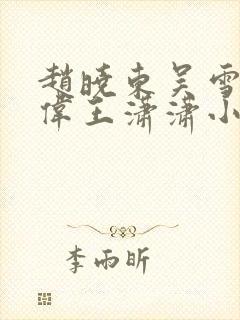 趙曉東吳雪
偉王瀟瀟小
李雨昕